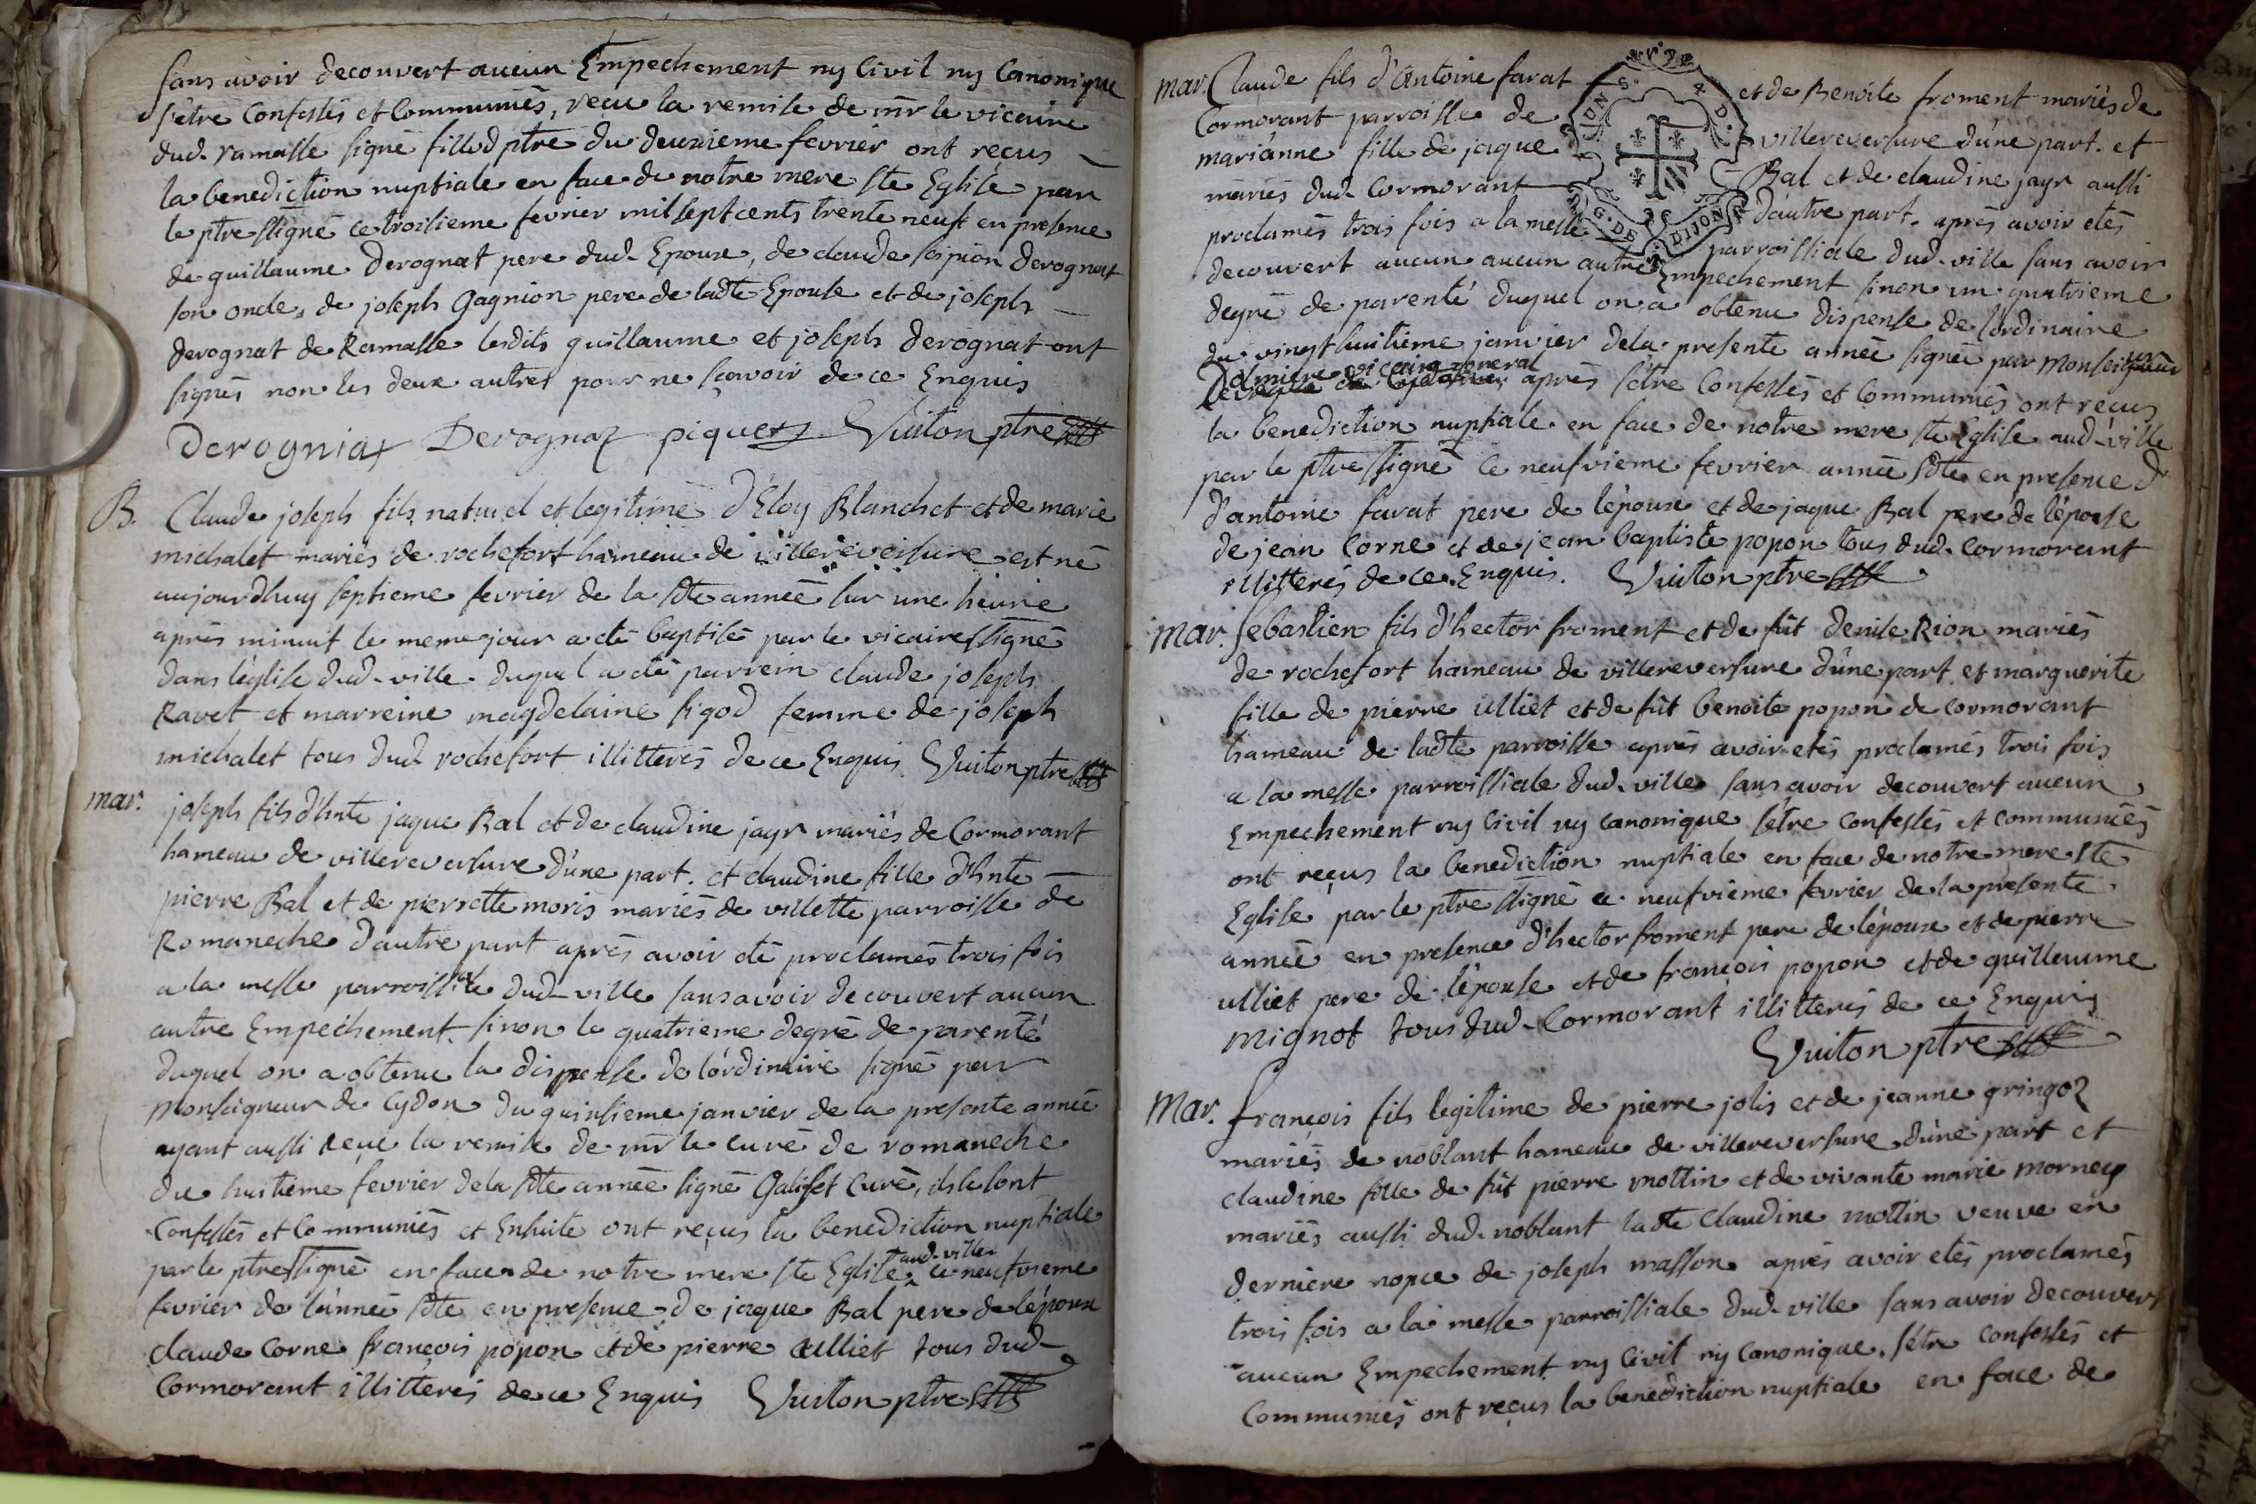 sans avoir decouvert aucun Empechement ny Civil ny Canonique
s'être Confessés et Communiés, reçu la remise de mr le vicaire
dud. ramasse signé fillod ptre du deuxieme fevrier ont recus
la benediction nuptiale en face de notre mere ste Eglise par
le ptre ssigné ce troisieme fevrier mil sept cents trente neuf en presence
de guillaume Derognat pere dud. Epoux, de claude scipion Derognat
son oncle, de joseph Gagnion pere de ladte Epouse et de joseph
derognat de Ramasse lesdits guillaume et joseph derognat ont
signés non les deux autres pour ne sçavoir de ce Enquis
Derogniat Derognaz piquet Vuiton ptre
B. Claude joseph fils naturel et legitime d'Eloy Blanchet et de marie
michalet mariés de rochefort hameau de villereversure est né
aujourdhuy septieme fevrier de la sdte année sur une heure
après minuit le meme jour a eté baptisé par le vicaire ssigné
dans léglise dud. ville. duquel a eté parrein claude joseph
Ravet et marreine magdelaine sigod femme de joseph
michalet tous dud rochefort illitterés de ce Enquis Vuiton ptre
mar. joseph fils d'hnte jaque Bal et de claudine jayr mariés de Cormorant
hameau de villereversure d'une part. et claudine fille d'hnte
pierre Bal et de pierrette moris mariés de villette parroisse de
Romaneche d'autre part après avoir eté proclamés trois fois
a la messe parroissiale dud. ville sans avoir decouvert aucun
autre Empechement sinon le quatrieme degré de parenté
duquel on a obtenu la dispense de l'ordinaire signé par
Monseigneur de Cydon du quinsieme janvier de la presente année
ayant aussi reçu la remise de mr le curé de romaneche
du huitieme fevrier dela sdte année signé Galisset Curé, ils se sont
Confessés et Communiés et Ensuite ont reçus la benediction nuptiale
par le ptre ssigné en face de notre mere ste Eglise aud. ville ce neufvieme
fevrier de l'année sdte en presence de jaque Bal pere de l'époux
claude Corne françois popon et de pierre ulliet tous dud.
Cormorant illitterés de ce Enquis Vuiton ptre
mar. Claude fils d'Antoine farat et de Benoite froment mariés de
Cormorant parroisse de villereversure d'une part. et
marianne fille de jaque Bal et de claudine jayr aussi
mariés dud. Cormorant d'autre part. après avoir etés
proclamés trois fois a la messe parroissiale dud. ville sans avoir
decouvert aucun aucun autre Empechement sinon un quatrieme
degré de parenté duquel on a obtenu dispense de lordinaire
du vingt huitieme janvier dela presente année signée par Monseigneur
vicaire general après s'être Confessés et Communiés ont reçus
la benediction nuptiale en face de notre mere ste Eglise aud. ville
par le ptre ssigné ce neufvieme fevrier année sdte en presence
d'antoine farat pere de l'époux et de jaque Bal pere de l'épouse
de jean Corne et de jean baptiste popon tous dud. Cormorant
illitterés de ce Enquis. Vuiton ptre
Mar. Sebastien fils d'hector froment et de fût denise Rion mariés
de rochefort hameau de villereversure d'une part et marguerite
fille de pierre ulliet et de fût benoite popon de cormorant
hameau de ladte parroisse après avoir etés proclamés trois fois
a la messe parroissiale dud. ville sans avoir decouvert aucun
Empechement ny Civil ny canonique s'être confessés et communiés
ont reçus la benediction nuptiale en face de notre mere ste
Eglise par le ptre ssigné ce neufvieme fevrier de la présente
année en presence d'hector froment pere de l'époux et de pierre
ulliet pere de l'épouse et de françois popon et de guillaume
Mignot tous dud. Cormorant illitterés de ce Enquis
Vuiton ptre
Mar. françois fils legitime de pierre jolis et de jeanne gringoz
mariés de noblant hameau de villereversure d'une part et
claudine fille de fût pierre mottin et de vivante marie morney
mariés aussi dud. noblant ladte Claudine mottin veuve en
derniere nopce de joseph masson après avoir etés proclamés
trois fois a la messe parroissiale dud. ville sans avoir decouvert
aucun Empechement ny Civil ny Canonique. s'être confessés et
Communiés ont reçus la benediction nuptiale en face de
G. DE DIJON